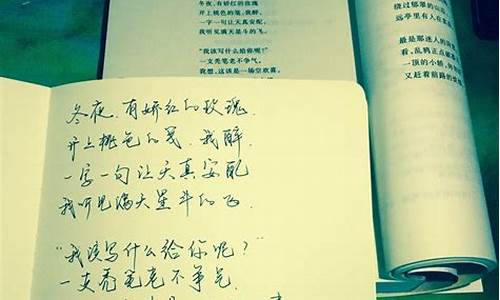 冬夜,有娇红的玫瑰
开上桃色的笺,我醉,
一字一句让天真安配,
我听见满天星斗的飞。
“我该写什么给你呢?”
一支秃笔老不争气。
我想,这该是一场空欢喜。
绕过郁翠的山
远亭里有人在
最是那迷人的
看,乱鸦正点
一顶的小轿,
又赶着前路的
冬夜,有娇红的玫瑰,
开上桃色的笺,我醉,
一字一句让天真安配
我听见满天星斗的飞
“我该写什么给你呢?”
一支秃笔老不争气.